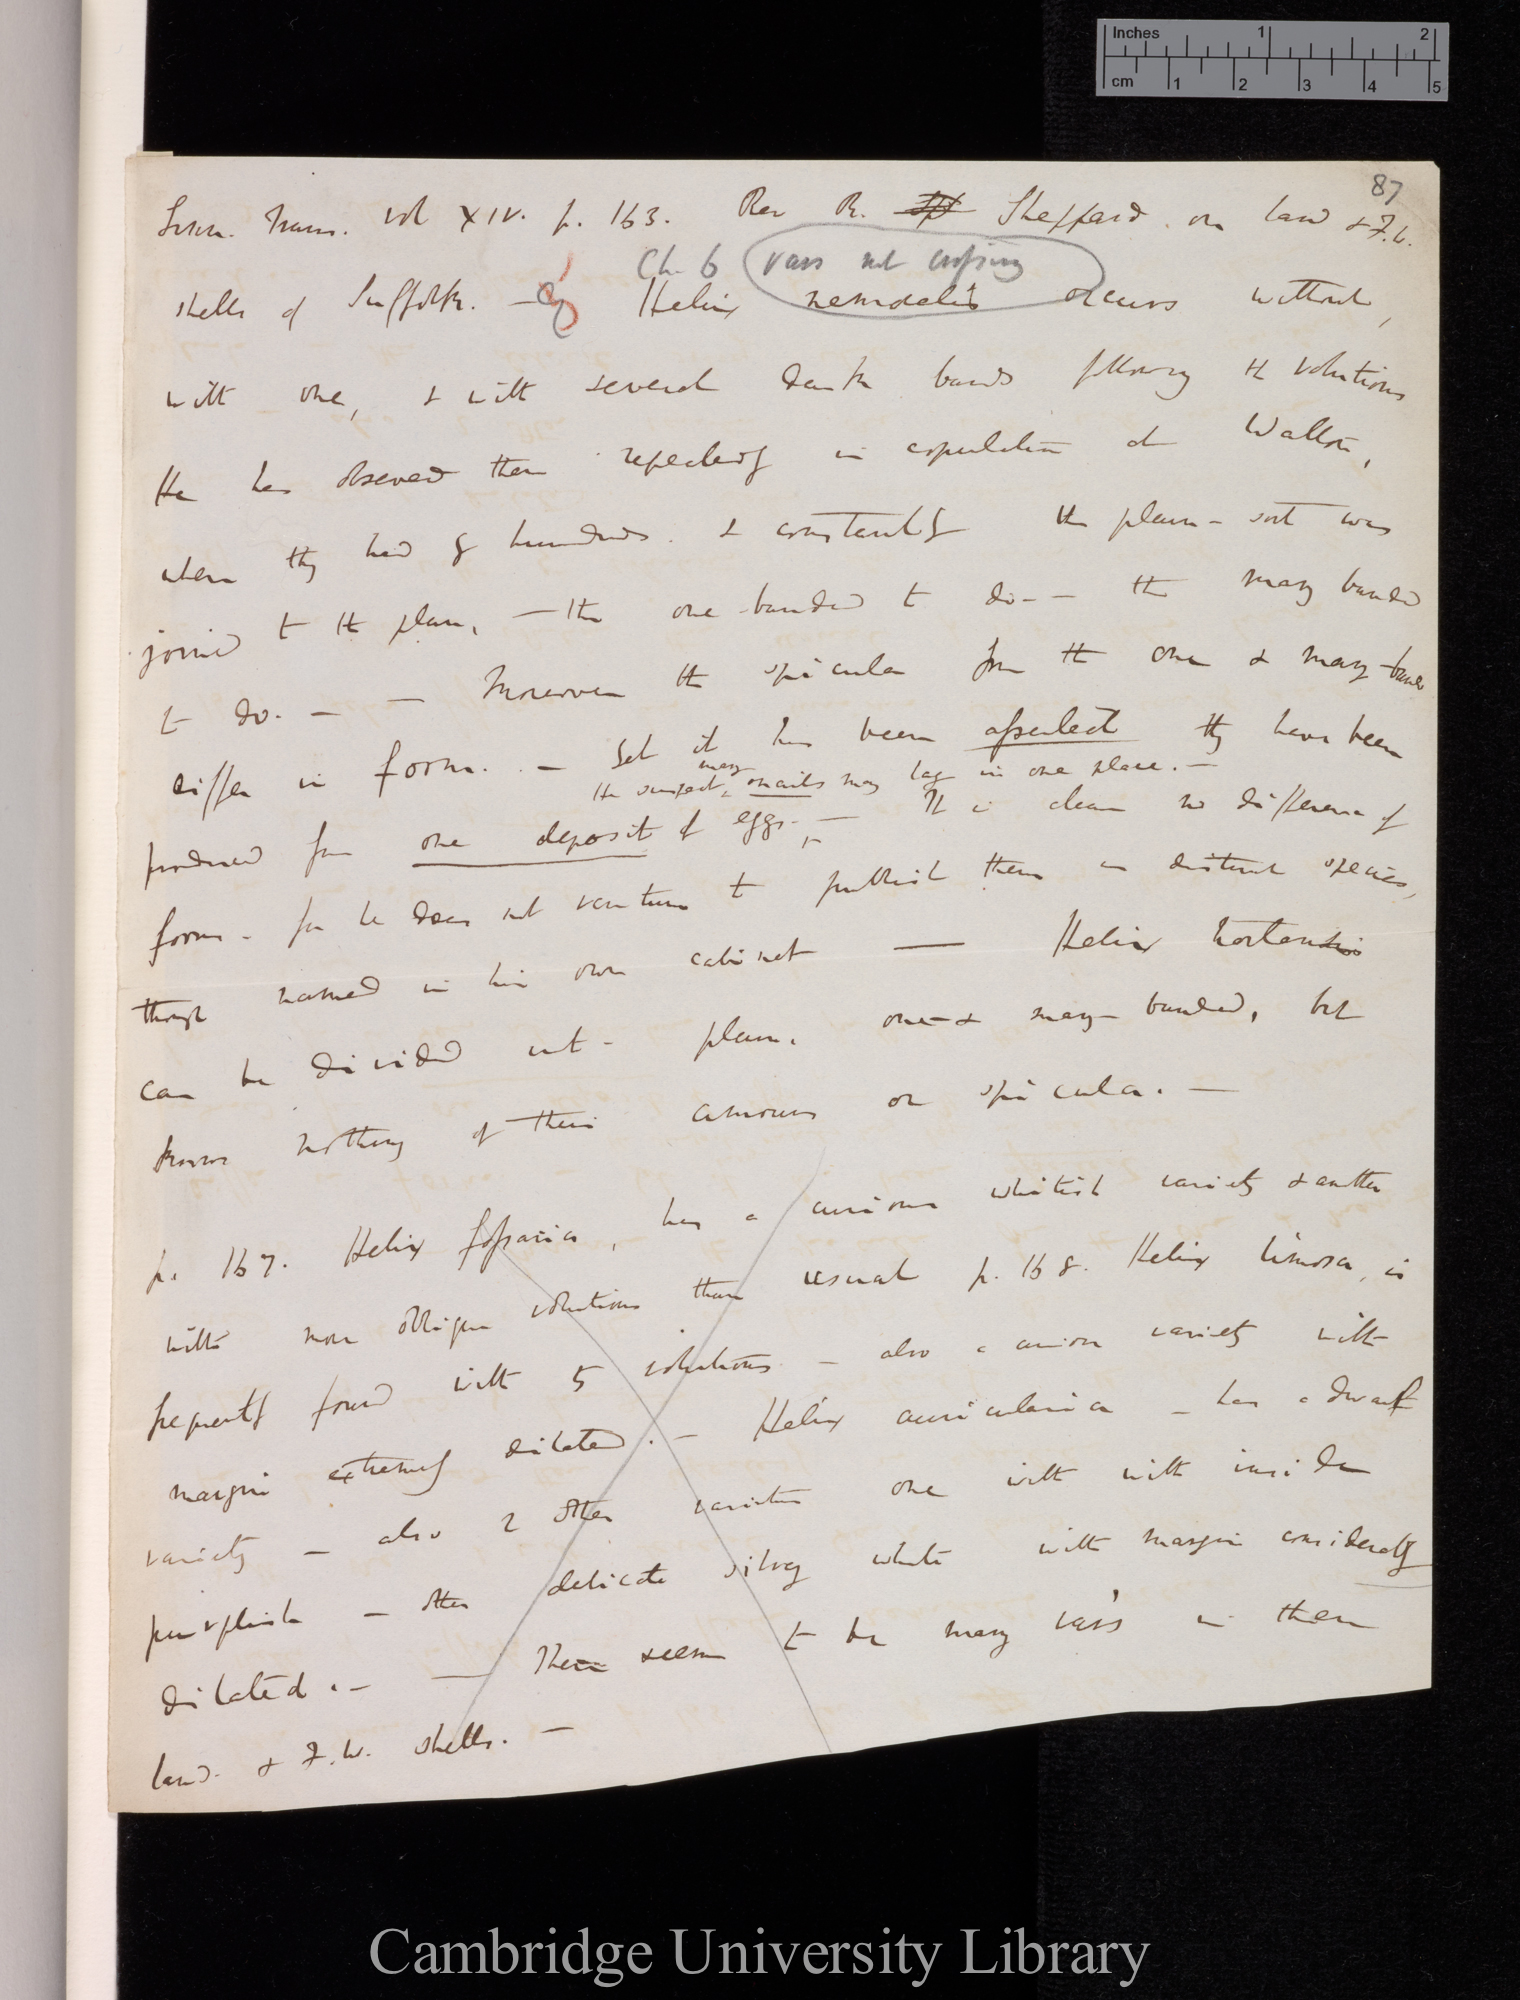 Inches 1 2
cm 1 2 3 4 5
87
Linn. Trans. vol XIV. p. 163. Rev R. Sheppard. on land & F.W.
Ch. 6 vars not crossing
shells of Suffolk. — Helix nemoralis occurs without,
with one, & with several dark bands following the volutions
He has observed them repeatedly in copulation at Walton,
where they had by hundreds. & constantly the plain-sort was
joined to the plain, — the one-banded to do — the many banded
to do. — — Moreover the spicula from the one & many-banded
differ in form. — Yet it has been asserted they have been
He suspects, many snails may lay in one place. —
produced from one deposit of eggs. — It is clear no difference of
form. for he does not venture to publish them as distinct species,
though named in his own cabinet — Helix hortensis
can be divided into plain. one- & many-banded, but
knows nothing of their amours or spicula. —
p. 167. Helix fossaria, has a curious whitish variety & another
with more oblique volutions than usual p. 168. Helix limosa, is
frequently found with 5 volutions — also a curious variety with
margin extremely dilated. — Helix auricularia — has a dwarf
variety — also 2 other varieties one with with inside
purplish — other delicate silvery white with margin considerably
dilated. — — There seem to be many vars in these
land. & F.W. shells. —
Cambridge University Library